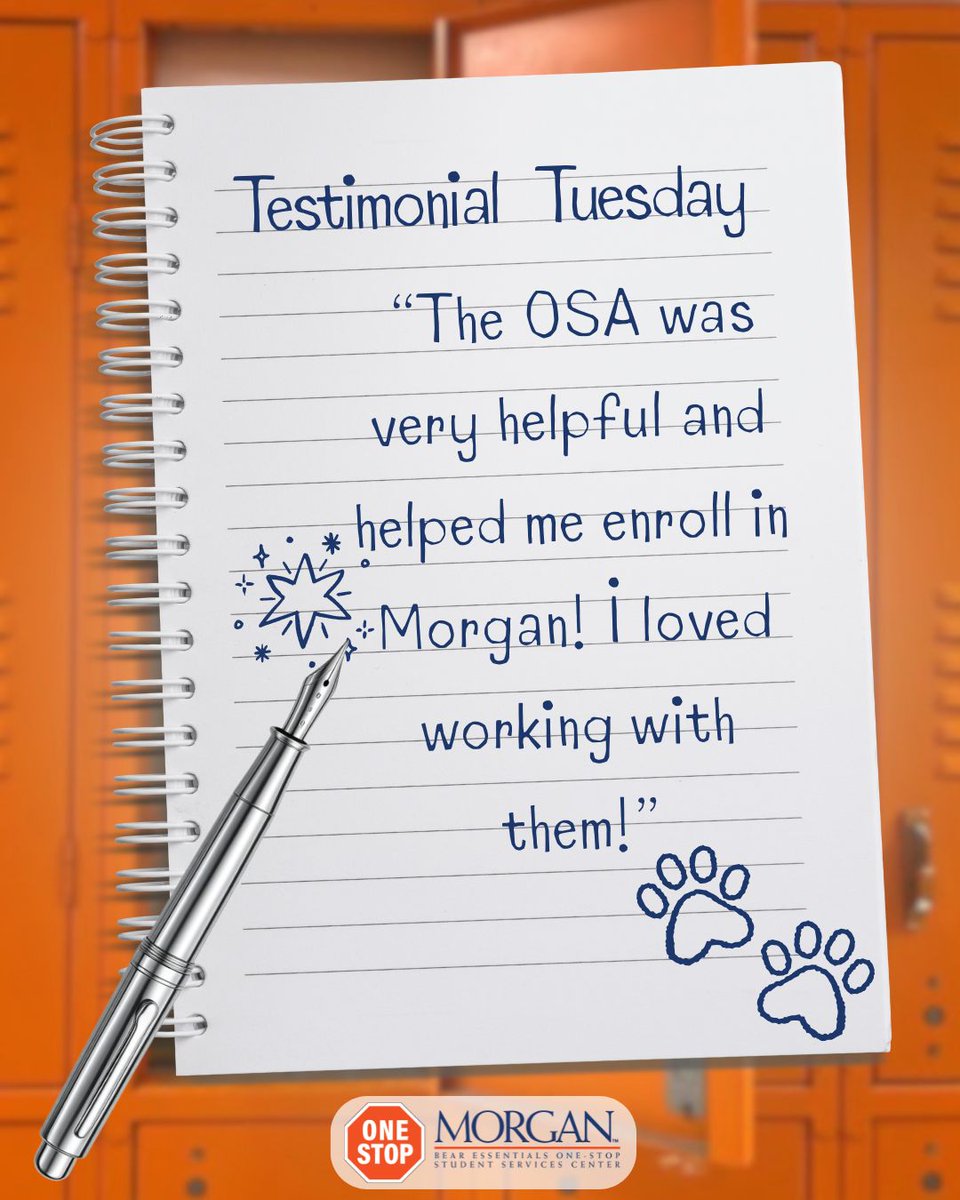 Testimonial Tuesday
“The OSA was
very helpful and
helped me enroll in
Morgan! I loved
working with
them!”
ONE
STOP
MORGAN™
BEAR ESSENTIALS ONE-STOP
STUDENT SERVICES CENTER